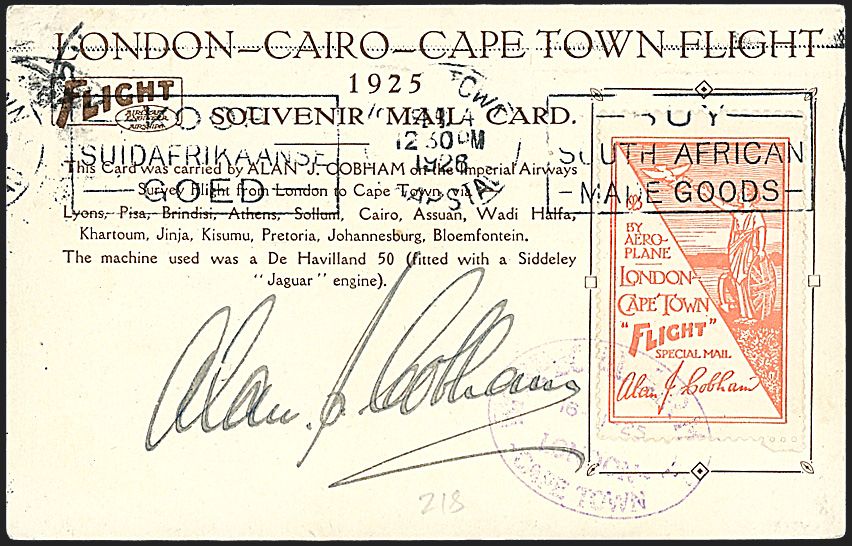 LONDON–CAIRO–CAPE TOWN FLIGHT
1925
SOUVENIR MAIL CARD.
FLIGHT
This Card was carried by ALAN J. COBHAM on the Imperial Airways
Survey Flight from London to Cape Town, via
Lyons, Pisa, Brindisi, Athens, Sollum, Cairo, Assuan, Wadi Halfa,
Khartoum, Jinja, Kisumu, Pretoria, Johannesburg, Bloemfontein.
The machine used was a De Havilland 50 (fitted with a Siddeley
"Jaguar" engine).
SUIDAFRIKAANSE
GOED
12 30 PM
1926
BUY
SOUTH AFRICAN
MADE GOODS
BY
AERO-
PLANE
LONDON-
CAPE TOWN
"FLIGHT"
SPECIAL MAIL
Alan J. Cobham
Alan J. Cobham
LONDON
CAPE TOWN
218